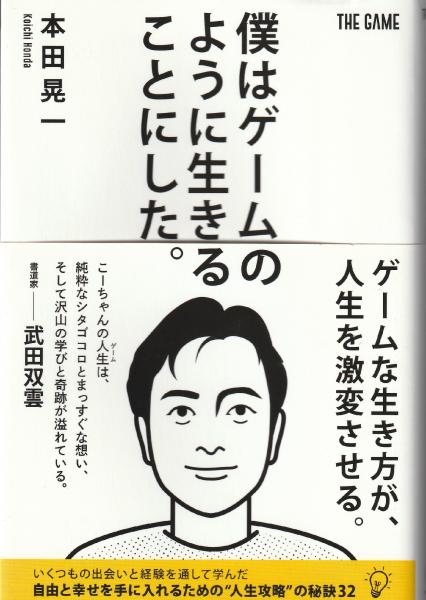 THE GAME
僕はゲームの
ように生きる
ことにした。
本田晃一
Koichi Honda
ゲームな生き方が、
人生を激変させる。
こーちゃんの人生は、
ゲーム
純粋なシタゴコロとまっすぐな想い、
そして沢山の学びと奇跡が溢れている。
書道家──武田双雲
いくつもの出会いと経験を通して学んだ
自由と幸せを手に入れるための“人生攻略”の秘訣32